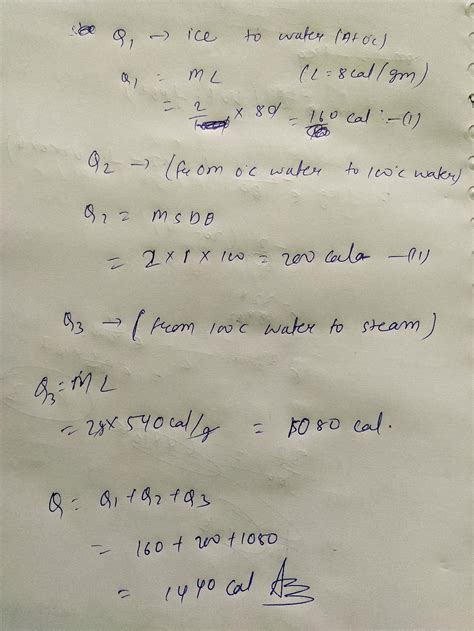 Q1 → ice to water (At 0°c)
Q1 = ML (L = 8cal/gm)
= 2 × 80 = 160 cal -(1)
Q2 → (from 0°c water to 100°c water)
Q2 = MSDθ
= 2 × 1 × 100 = 200 cal -(11)
Q3 → (from 100°c water to steam)
Q3 = ML
= 2g × 540 cal/g = 1080 cal.
Q = Q1 + Q2 + Q3
= 160 + 200 + 1080
= 1440 cal